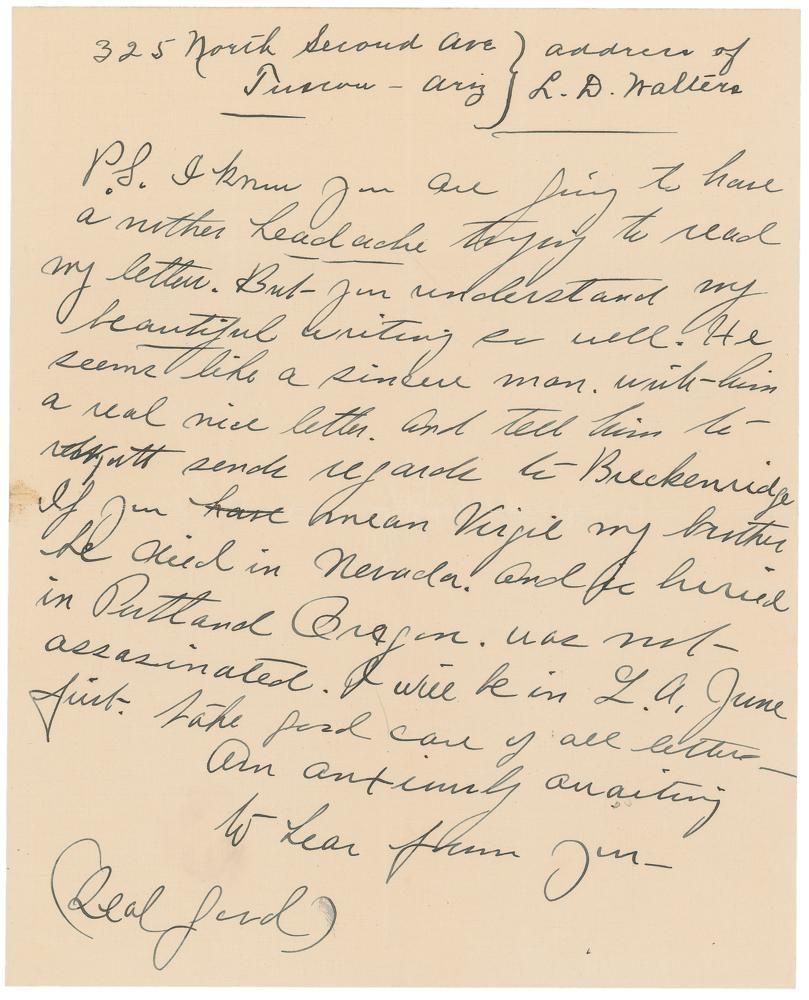 325 North Second Ave } address of
Tuscon - Ariz } L. D. Walters
P.S. I know you are going to have
a nother headache trying to read
my letter. But you understand my
beautiful writing so well. He
seems like a sincere man. write him
a real nice letter. And tell him to
send regards to Breckenridge
If you have mean Virgil my brother
he died in Nevada. And is buried
in Portland Oregon. was not
assasinated. I will be in L.A. June
first. take good care of all letters
Am anxiously awaiting
to hear from you
(Seal good)